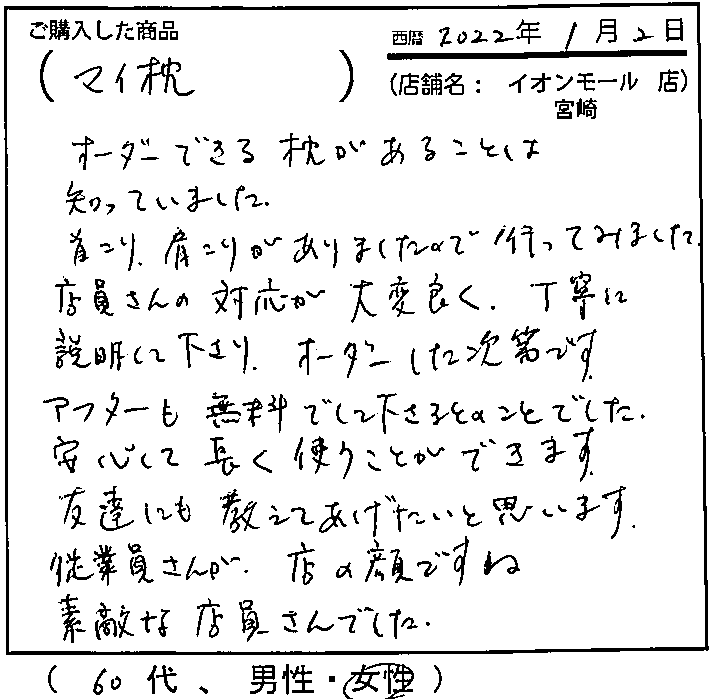 ご購入した商品
西暦 2022年 1月2日
(マイ枕)
(店舗名： イオンモール 店)
宮崎
オーダーできる枕があることは
知っていました.
首こり、肩こりがありましたので行ってみました.
店員さんの対応が大変良く、丁寧に
説明して下さり、オーダーした次第です.
アフターも無料でして下さるとのことでした.
安心して長く使うことができます.
友達にも教えてあげたいと思います.
従業員さんが、店の顔ですね
素敵な店員さんでした.
(60代、男性・女性)